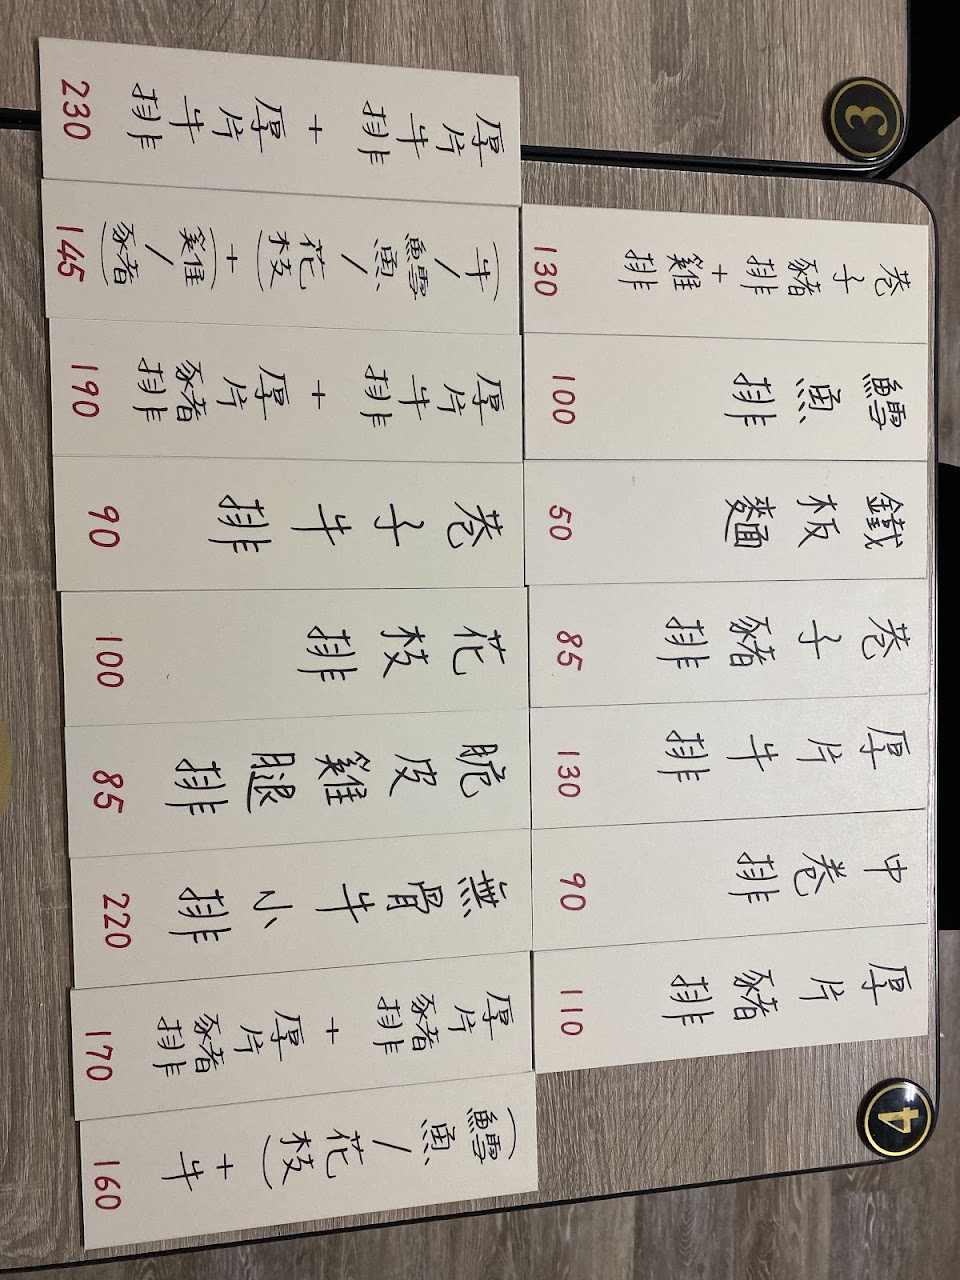 3
巷子豬排+雞排 130
鱈魚排 100
鐵板麵 50
巷子豬排 85
厚片牛排 130
中卷排 90
厚片豬排 110
4
厚片牛排+厚片牛排 230
(牛/鱈魚/花枝)+(雞/豬) 145
厚片牛排+厚片豬排 190
巷子牛排 90
花枝排 100
脆皮雞腿排 85
無骨牛小排 220
厚片豬排+厚片豬排 170
(鱈魚/花枝)+牛 160